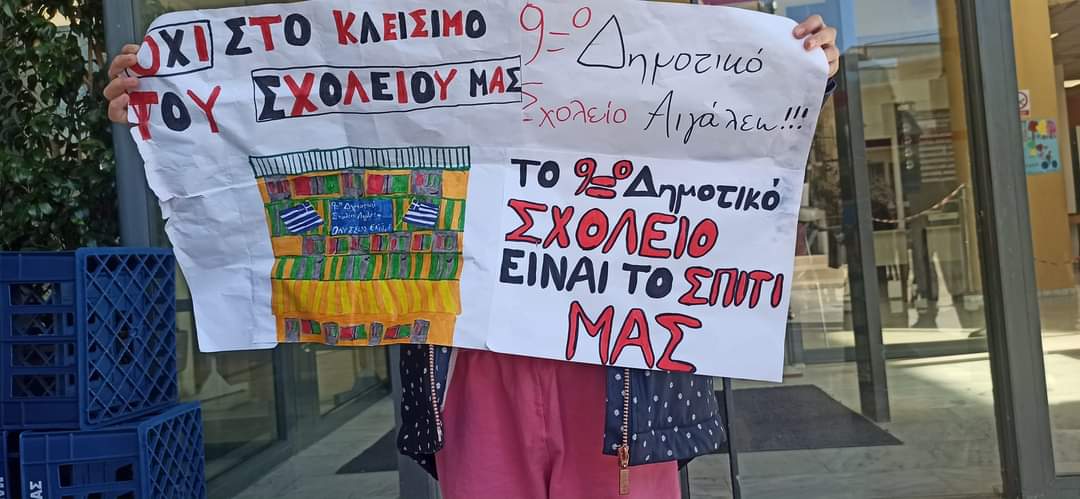 ΟΧΙ ΣΤΟ ΚΛΕΙΣΙΜΟ
ΤΟΥ ΣΧΟΛΕΙΟΥ ΜΑΣ
9=º Δημοτικό
Σχολείο Αιγάλεω!!!
9=º Δημοτικό
Σχολείο Αιγάλεω
ΤΟ 9=º Δημοτικό
ΣΧΟΛΕΙΟ
ΕΙΝΑΙ ΤΟ ΣΠΙΤΙ
ΜΑΣ